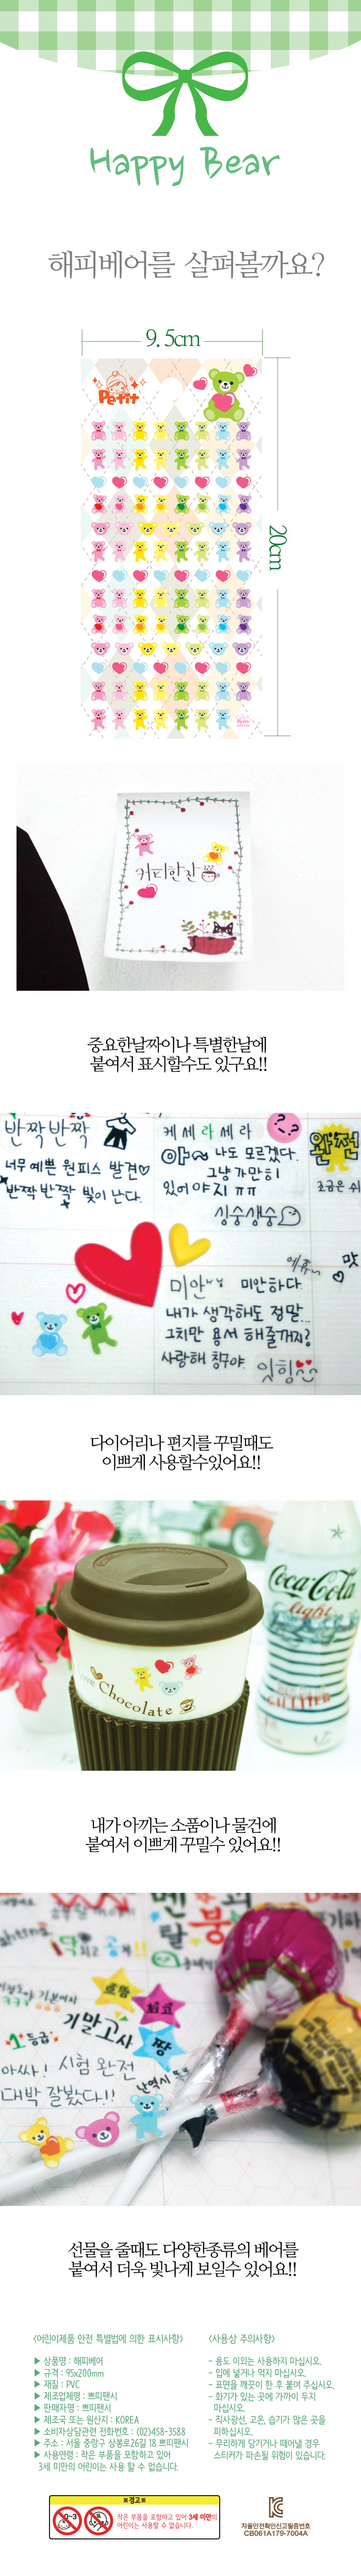 Happy Bear
해피베어를 살펴볼까요?
9.5cm
Petit
20cm
커피한잔
중요한날짜이나 특별한날에
붙여서 표시할수도 있구요!!
반짝반짝
너무 예쁜 원피스 발견♡
반짝 반짝 빛이 난다.
케세라세라
아~ 나도 모르겠다.
그냥 가만히
있어야지 ㅠㅠ
싱숭생숭
완전
맛
미안 미안하다.
내가 생각해도 정말...
그치만 용서 해줄꺼지?
사랑해 칭구야. 잉힝
다이어리나 편지를 꾸밀때도
이쁘게 사용할수있어요!!
Love Chocolate
Coca-Cola
light
내가 아끼는 소품이나 물건에
붙여서 이쁘게 꾸밀수 있어요!!
흐뭇
최고
짱
1등급
기말고사
아싸! 시험 완전
대박 잘봤다!!
선물을 줄때도 다양한종류의 베어를
붙여서 더욱 빛나게 보일수 있어요!!
<어린이제품 안전 특별법에 의한 표시사항>
▶ 상품명 : 해피베어
▶ 규격 : 95x200mm
▶ 재질 : PVC
▶ 제조업체명 : 쁘띠팬시
▶ 판매자명 : 쁘띠팬시
▶ 제조국 또는 원산지 : KOREA
▶ 소비자상담관련 전화번호 : (02)458-3588
▶ 주소 : 서울 중랑구 상봉로26길 18 쁘띠팬시
▶ 사용연령 : 작은 부품을 포함하고 있어
3세 미만의 어린이는 사용 할 수 없습니다.
<사용상 주의사항>
- 용도 이외는 사용하지 마십시오.
- 입에 넣거나 먹지 마십시오.
- 표면을 깨끗이 한 후 붙여 주십시오.
- 화기가 있는 곳에 가까이 두지
마십시오.
- 직사광선, 고온, 습기가 많은 곳을
피하십시오.
- 무리하게 당기거나 떼어낼 경우
스티커가 파손될 위험이 있습니다.
※경고※
0-3
작은 부품을 포함하고 있어 3세 미만의
어린이는 사용할 수 없습니다.
자율안전확인신고필증번호
CB061A179-7004A